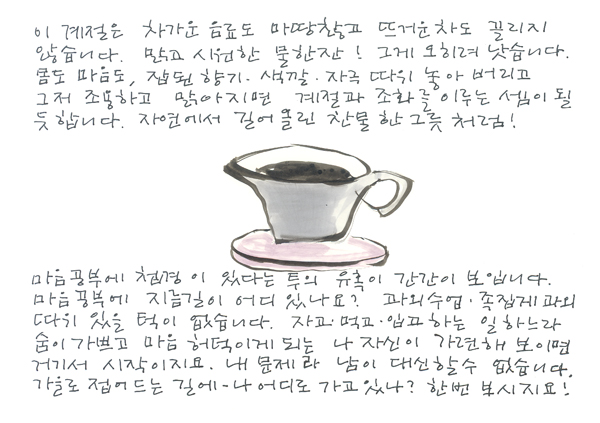 이 계절은 차가운 음료도 마땅찮고 뜨거운차도 끌리지
않습니다. 맑고 시원한 물한잔! 그게 오히려 낫습니다.
몸도 마음도, 잡된 향기·색깔·자극 따위 놓아 버리고
그저 조용하고 맑아지면 계절과 조화를 이루는 셈이 될
듯 합니다. 자연에서 길어올린 찬물 한 그릇 처럼!
마음공부에 첩경이 있다는 투의 유혹이 간간이 보입니다.
마음공부에 지름길이 어디 있나요? 과외수업·족집게 과외
따위 있을 턱이 없습니다. 자고·먹고·입고 하는 일 하느라
숨이 가쁘고 마음 허덕이게 되는 나 자신이 가련해 보이면
거기서 시작이지요. 내 문제라 남이 대신할수 없습니다.
가을로 접어드는 길에-나 어디로 가고있나? 한번 보시지요!